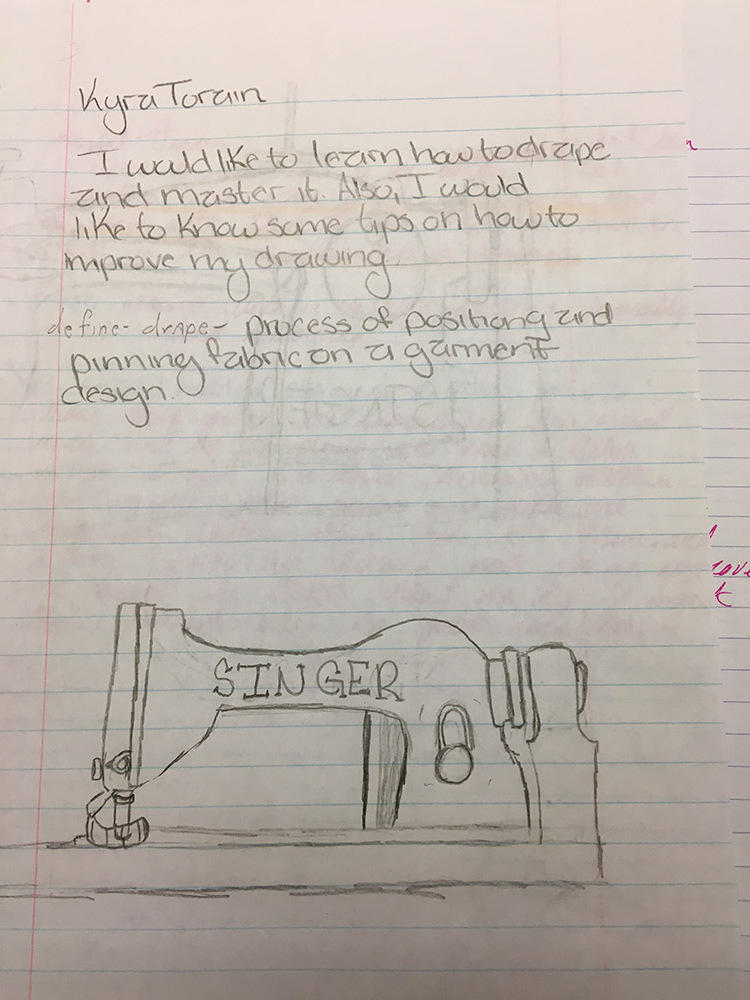 Kyra Torain
I would like to learn how to drape
and master it. Also, I would
like to know some tips on how to
improve my drawing.
define- drape- process of positiong and
pinning fabric on a garment
design.
SINGER